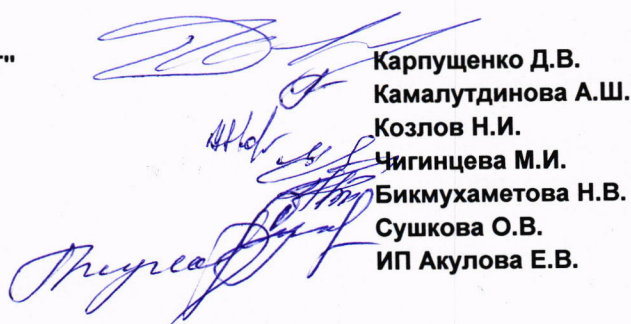 "
Карпущенко Д.В.
Камалутдинова А.Ш.
Козлов Н.И.
Чигинцева М.И.
Бикмухаметова Н.В.
Сушкова О.В.
ИП Акулова Е.В.